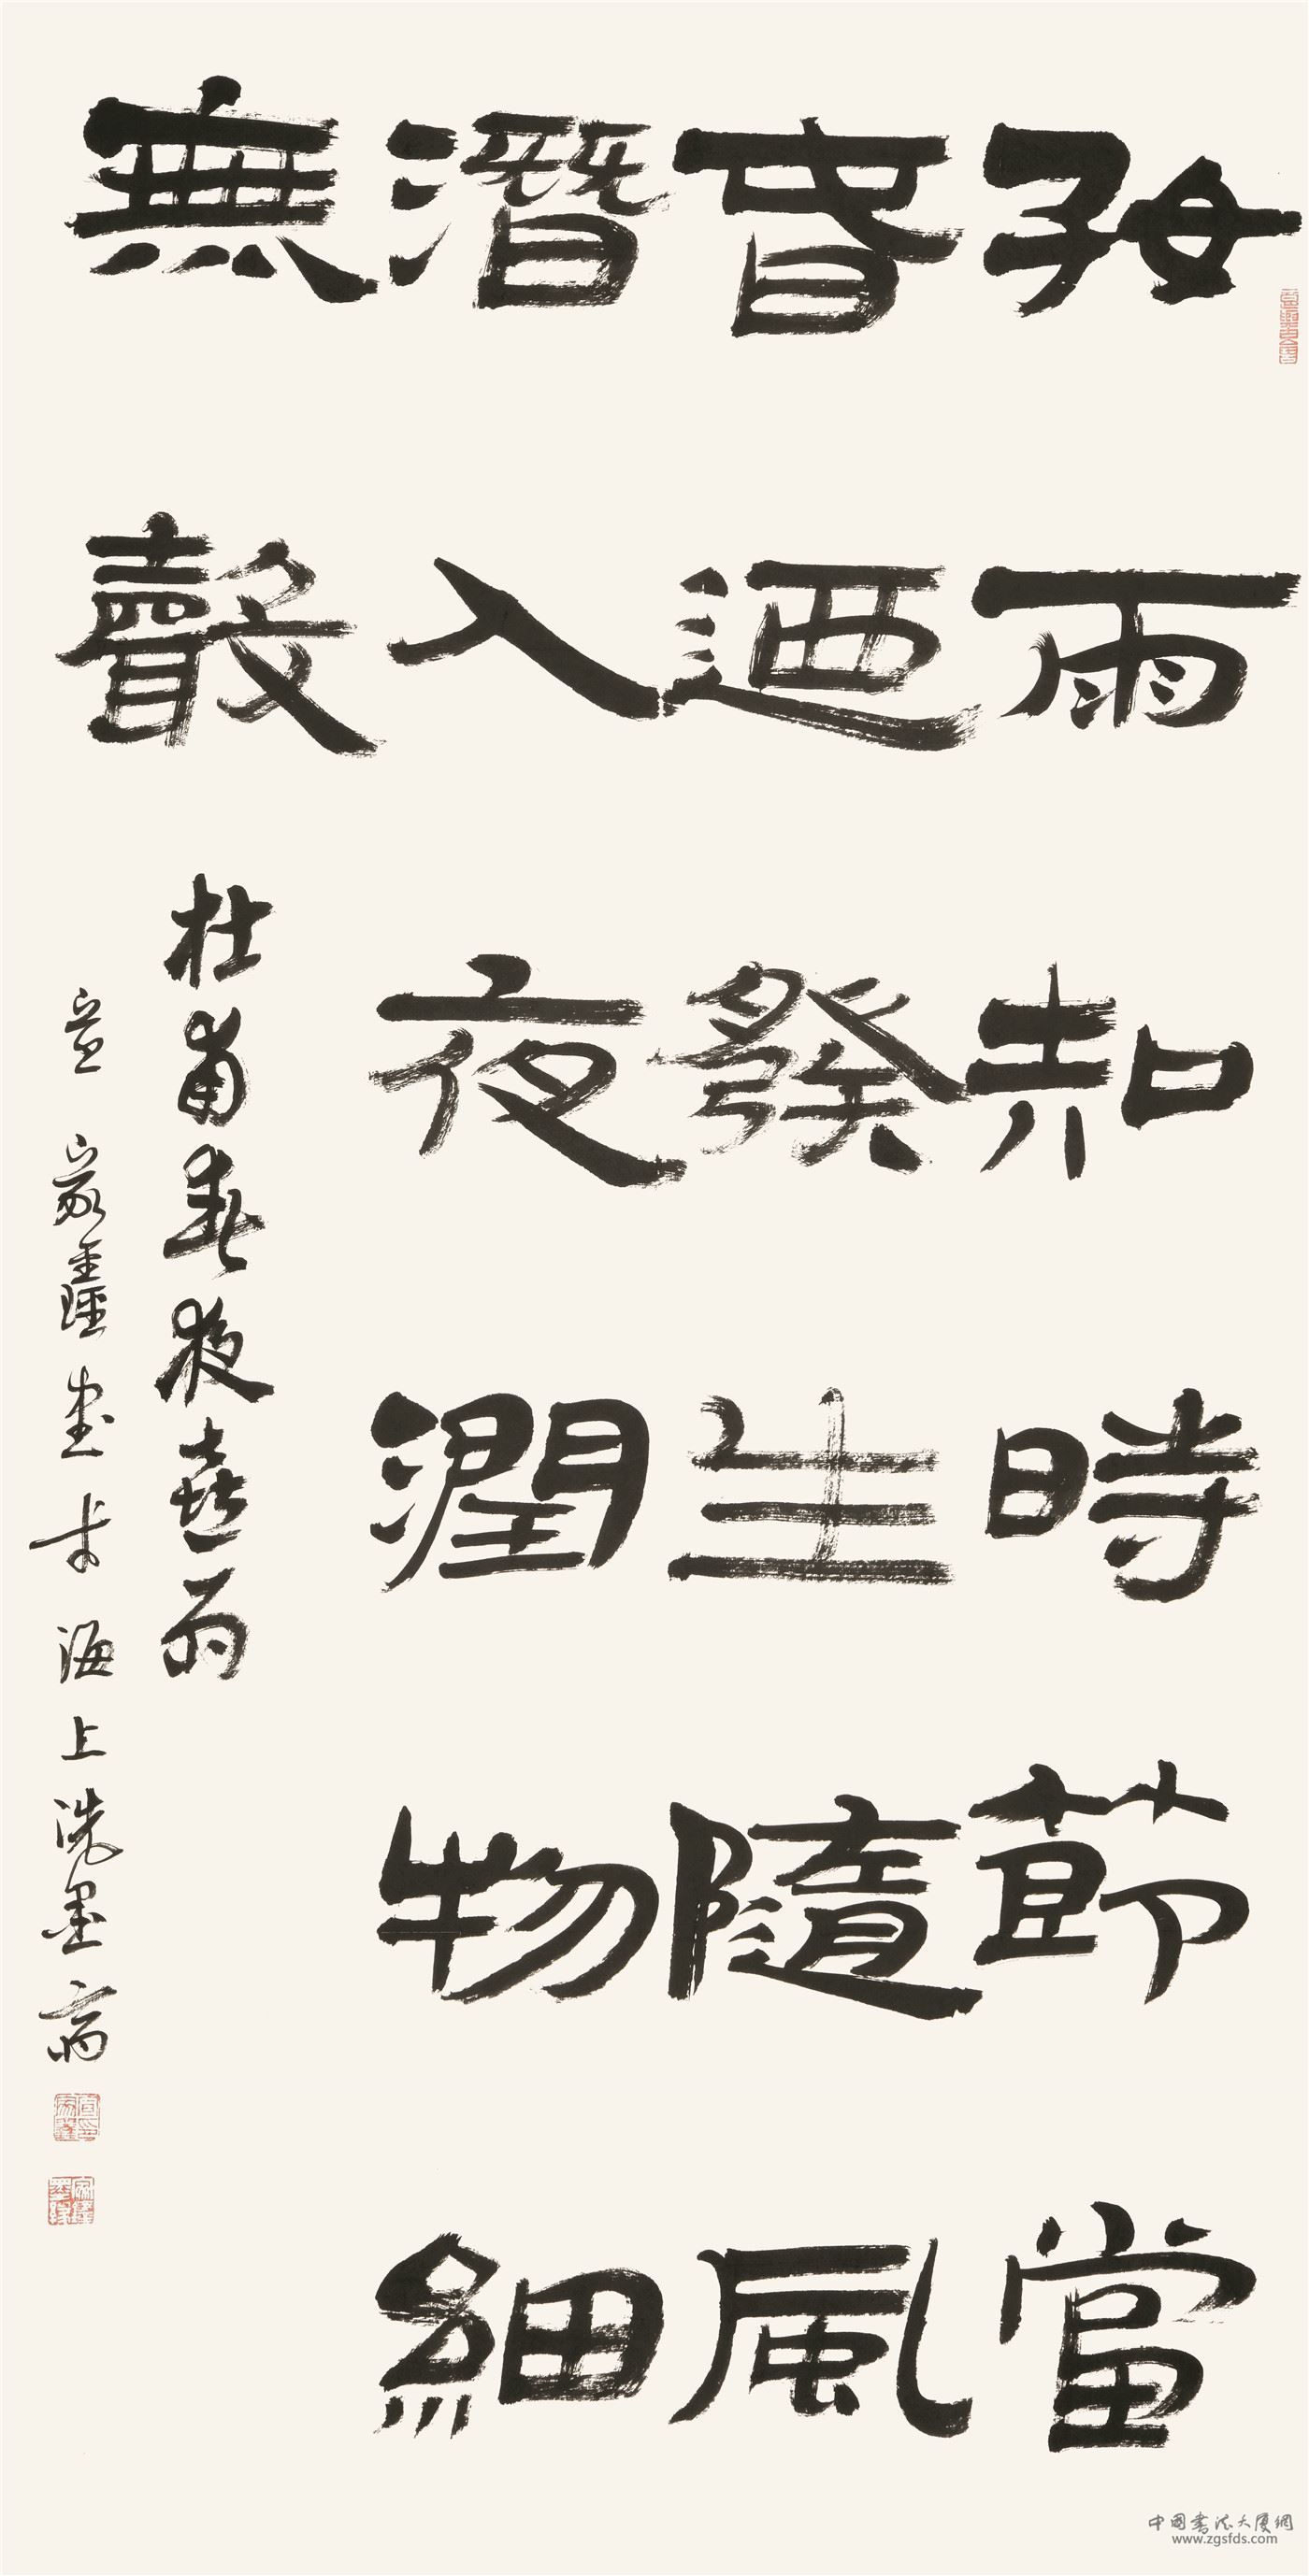 好雨知時節當
春迺發生隨風
潛入夜潤物細
無聲
杜甫春夜喜雨
宣家鑫書于海上洗墨齋
中國書法大廈網
www.zgsfds.com